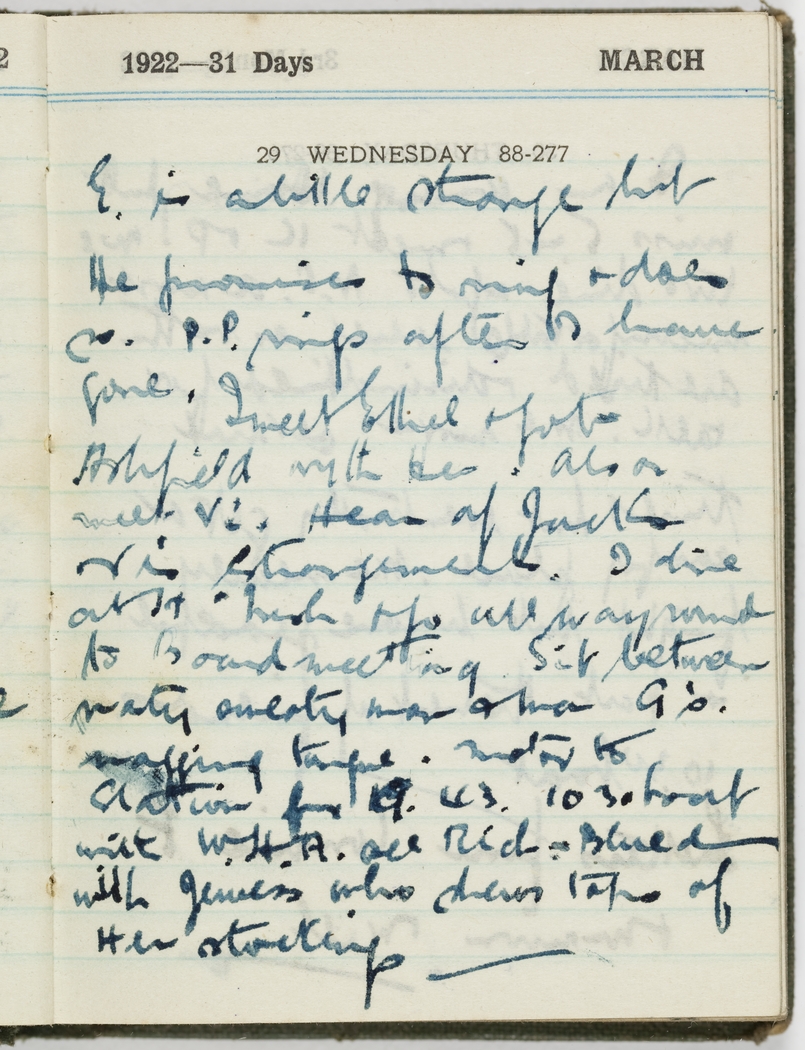 1922—31 Days MARCH
29 WEDNESDAY 88-277
E. is a little strange but
He promises to ring & does
so. P.P. rings after I have
gone. I meet Ethel & go to
Ashfield with her. Also
meet Vi. Hear of Jack
& Vi's estrangement. I dine
at & go all way round
to Board meeting Sit between
nasty sweaty man & Mrs G's.
nagging tongue. Motor to
Station for 9.43. 10.30 boat
with W.H.A. see Red-
with who shews tops of
Her stockings —